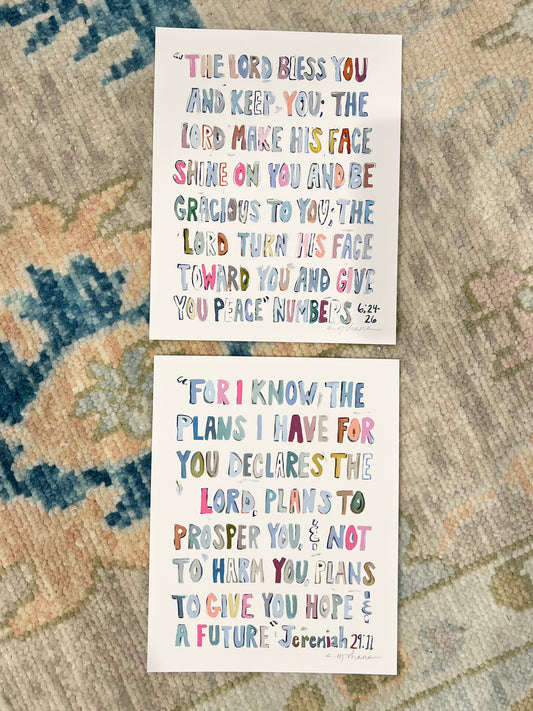 "THE LORD BLESS YOU
AND KEEP YOU; THE
LORD MAKE HIS FACE
SHINE ON YOU AND BE
GRACIOUS TO YOU; THE
LORD TURN HIS FACE
TOWARD YOU AND GIVE
YOU PEACE" NUMBERS 6:24-
26
"FOR I KNOW THE
PLANS I HAVE FOR
YOU DECLARES THE
LORD, PLANS TO
PROSPER YOU, & NOT
TO HARM YOU, PLANS
TO GIVE YOU HOPE &
A FUTURE" Jeremiah 29:11